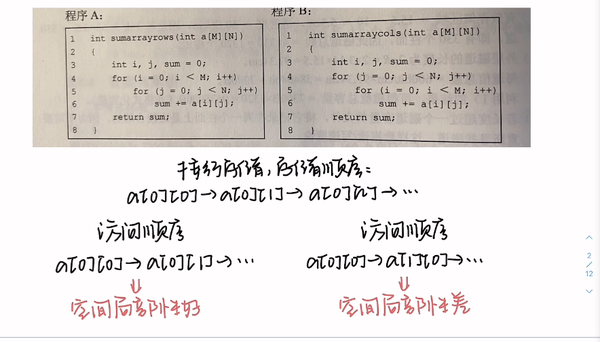 程序 A:
1 int sumarrayrows(int a[M][N])
2 {
3 int i, j, sum = 0;
4 for (i = 0; i < M; i++)
5 for (j = 0; j < N; j++)
6 sum += a[i][j];
7 return sum;
8 }
程序 B:
1 int sumarraycols(int a[M][N])
2 {
3 int i, j, sum = 0;
4 for (j = 0; j < N; j++)
5 for (i = 0; i < M; i++)
6 sum += a[i][j];
7 return sum;
8 }
按行存储,存储顺序:
a[0][0]→a[0][1]→a[0][2]→…
访问顺序
a[0][0]→a[0][1]→…
空间局部性好
访问顺序
a[0][0]→a[1][0]→…
空间局部性差
2
/
12